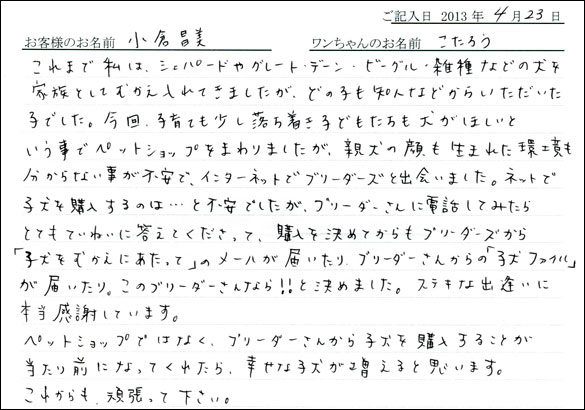 ご記入日 2013 年 4 月 23 日
お客様のお名前 小倉昌美 ワンちゃんのお名前 こたろう
これまで私は、シェパードやグレート・デーン・ビーグル・雑種などの犬を
家族としてむかえ入れてきましたが、どの子も知人などからいただいた
子でした。今回、子育ても少し落ち着き子どもたちも犬がほしいと
いう事でペットショップをまわりましたが、親犬の顔も生まれた環境も
分からない事が不安で、インターネットでブリーダーズと出会いました。ネットで
子犬を購入するのは…と不安でしたが、ブリーダーさんに電話してみたら
とてもていねいに答えてくださって、購入を決めてからもブリーダーズから
「子犬をむかえにあたって」のメールが届いたり、ブリーダーさんからの「子犬ファイル」
が届いたり。このブリーダーさんなら!!と決めました。ステキな出逢いに
本当感謝しています。
ペットショップではなく、ブリーダーさんから子犬を購入することが
当たり前になってくれたら、幸せな子犬が増えると思います。
これからも、頑張って下さい。